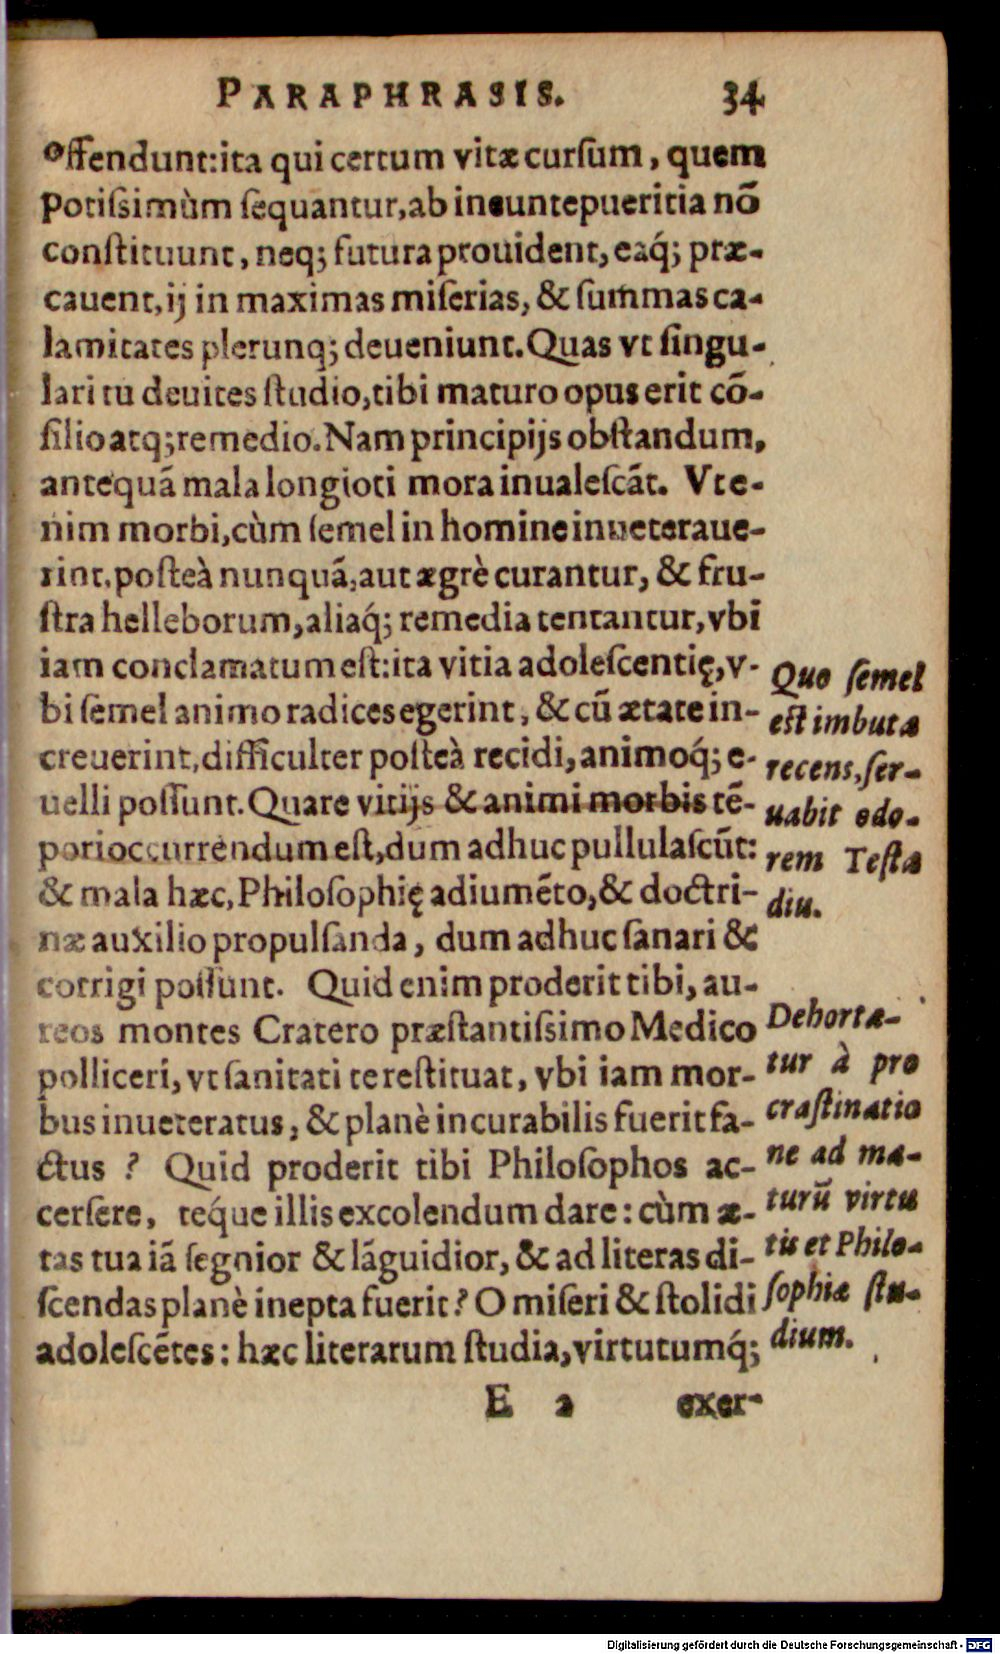 PARAPHRASIS. 34
offendunt:ita qui certum vitæ cursum, quem
potissimùm sequantur,ab ineuntepueritia nõ
constituunt, neq; futura prouident, eaq́; præ-
cauent,ij in maximas miserias, & summas ca-
lamitates plerunq; deueniunt. Quas vt singu-
lari tu deuites studio,tibi maturo opus erit cõ-
silio atq; remedio. Nam principijs obstandum,
antequã mala longiori mora inualescãt. Vt e-
nim morbi,cùm semel in homine inueteraue-
rint,posteà nunquã,aut ægrè curantur, & fru-
stra helleborum,aliaq́; remedia tentantur,vbi
iam conclamatum est:ita vitia adolescentię,v-
bi semel animo radices egerint, & cũ ætate in-
creuerint,difficulter posteà recidi,animoq́; e-
uelli possunt. Quare vitijs & animi morbis tẽ-
pori occurrendum est,dum adhuc pullulascũt:
& mala hæc,Philosophię adiumẽto,& doctri-
næ auxilio propulsanda, dum adhuc sanari &
corrigi possunt. Quid enim proderit tibi, au-
reos montes Cratero præstantissimo Medico
polliceri, vt sanitati te restituat, vbi iam mor-
bus inueteratus, & planè incurabilis fuerit fa-
ctus ? Quid proderit tibi Philosophos ac-
cersere, teq́ue illis excolendum dare: cùm æ-
tas tua iã segnior & lãguidior, & ad literas di-
scendas planè inepta fuerit? O miseri & stolidi
adolescẽtes: hæc literarum studia,virtutumq́;
E 2 exer-
Quo semel
est imbuta
recens,ser-
uabit odo-
rem Testa
diu.
Dehorta-
tur à pro
crastinatio
ne ad ma-
turũ virtu
tis et Philo-
sophiæ stu-
dium.
Digitalisierung gefördert durch die Deutsche Forschungsgemeinschaft - DFG